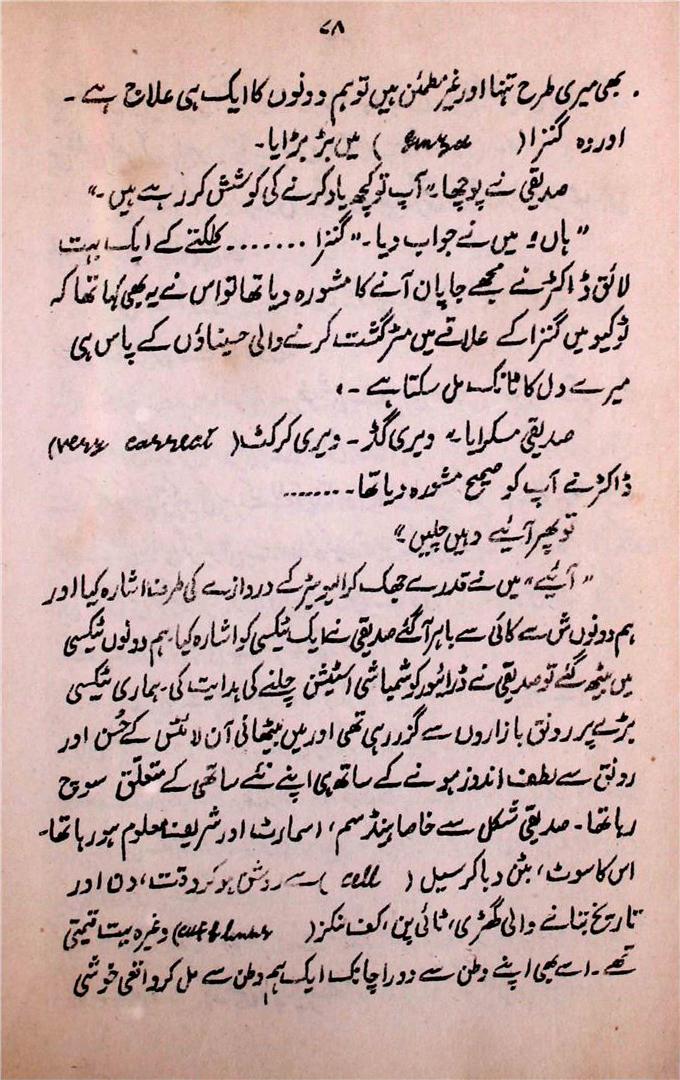 ۷۸
بھی میری طرح تنہا اور غیر مطمئن ہیں تو ہم دونوں کا ایک ہی علاج ہے۔
اور وہ گنزا ( Ginza ) میں بڑبڑایا۔
صدیقی نے پوچھا "آپ تو کچھ یاد کرنے کی کوشش کر رہے ہیں۔"
"ہاں" میں نے جواب دیا۔ "گنزا ....... کلکتے کے ایک بہت
لائق ڈاکٹر نے مجھے جاپان آنے کا مشورہ دیا تھا تو اس نے یہ بھی کہا تھا کہ
ٹوکیو میں گنزا کے علاقے میں مٹر گشت کرنے والی حسیناؤں کے پاس ہی
میرے دل کا ٹانک مل سکتا ہے۔"
صدیقی مسکرایا "ویری گڈ۔ ویری کرکٹ ( very correct )
ڈاکٹر نے آپ کو صحیح مشورہ دیا تھا۔.......
تو پھر آئیے وہیں چلیں"
"آئیے" میں نے قدرے جھک کر ایلیویٹر کے دروازے کی طرف اشارہ کیا اور
ہم دونوں ش سے کائی سے باہر آ گئے صدیقی نے ایک ٹیکسی کو اشارہ کیا۔ ہم دونوں ٹیکسی
میں بیٹھ گئے تو صدیقی نے ڈرائیور کو شمباشی اسٹیشن چلنے کی ہدایت کی۔ ہماری ٹیکسی
بڑے پر رونق بازاروں سے گزر رہی تھی اور میں بیٹھا نی آن لائٹس کے حُسن اور
رونق سے لطف اندوز ہونے کے ساتھ ہی اپنے نئے ساتھی کے متعلق سوچ
رہا تھا۔ صدیقی شکل سے خاصا ہینڈسم، اسمارٹ اور شریف معلوم ہو رہا تھا۔
اس کا سوٹ، بٹن دبا کر سیل ( cell ) سے روشن ہو کر وقت، دن اور
تاریخ بتانے والی گھڑی، ٹائی پن، کف لنکز ( cufflinks ) وغیرہ بہت قیمتی
تھے۔ اسے بھی اپنے وطن سے دور اچانک ایک ہم وطن سے مل کر واقعی خوشی